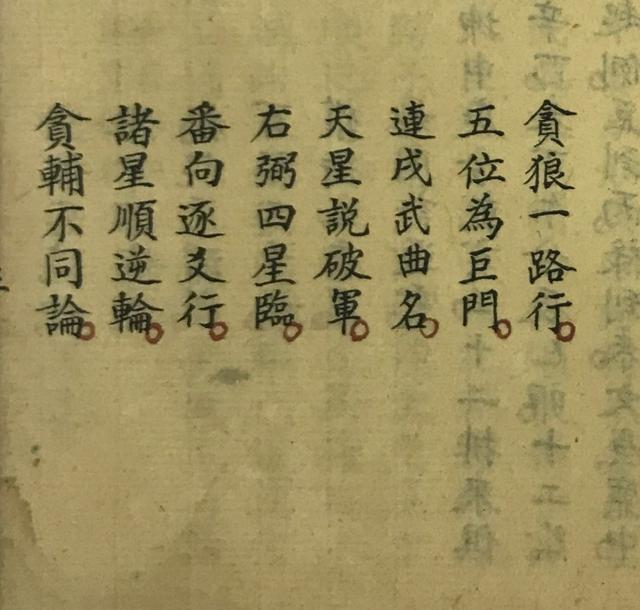 貪狼一路行
五位為巨門
連戌武曲名
天星説破軍
右弼四星臨
番向逐爻行
諸星順逆輪
貪輔不同論